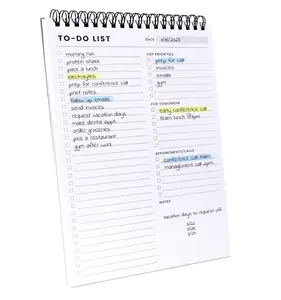 TO-DO LIST
DATE
morning run
protein shake
pack a lunch
electrolytes
prep for conference call
print notes
follow up emails
send invoices
request vacation days
make dental appt.
order groceries
pick a restaurant
gym after work
TOP PRIORITIES
prep for call
invoices
emails
gym
FOR TOMORROW
early conference call
team lunch @1pm
APPOINTMENTS/CALLS
conference call 11am
management call 2pm
NOTES
vacation days to request off: